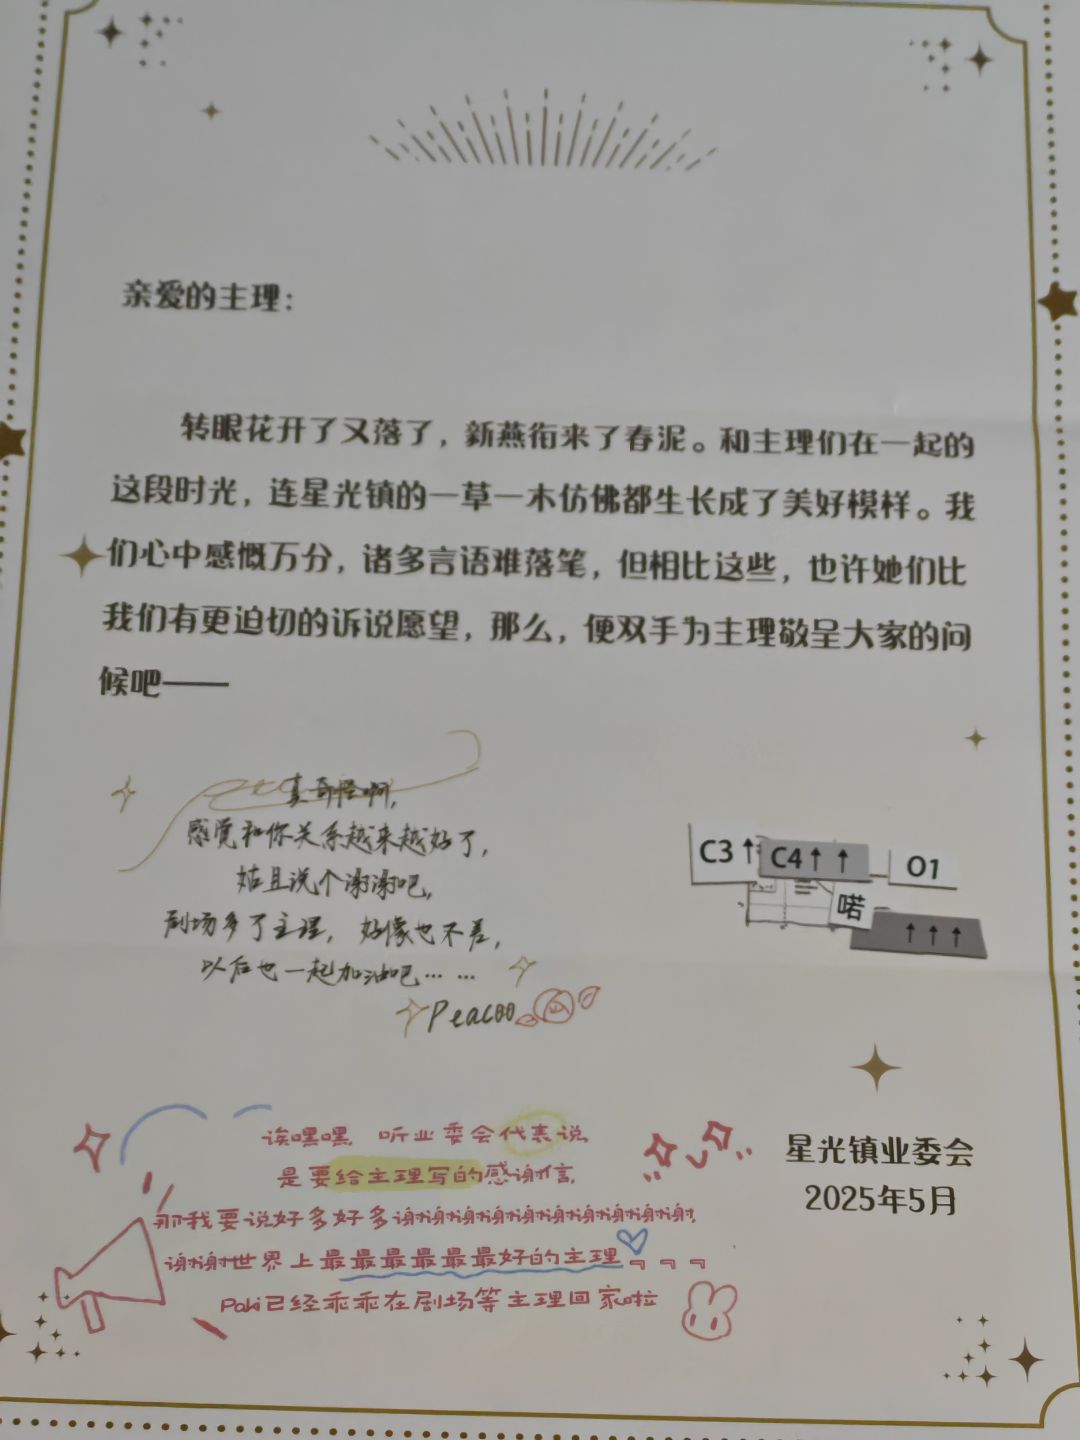 亲爱的主理：
转眼花开了又落了，新燕衔来了春泥。和主理们在一起的
这段时光，连星光镇的一草一木仿佛都生长成了美好模样。我
们心中感慨万分，诸多言语难落笔，但相比这些，也许她们比
我们有更迫切的诉说愿望，那么，便双手为主理敬呈大家的问
候吧——
真奇怪啊，
感觉和你关系越来越好了，
姑且说个谢谢吧，
剧场多了主理，好像也不差，
以后也一起加油吧……
Peacoo
C3↑ C4↑ ↑ O1
喏 ↑ ↑ ↑
诶嘿嘿，听业委会代表说，
是要给主理写的感谢信，
那我要说好多好多谢谢谢谢谢谢谢谢谢谢谢，
谢谢世界上最最最最最最好的主理
Paki已经乖乖在剧场等主理回家啦
星光镇业委会
2025年5月